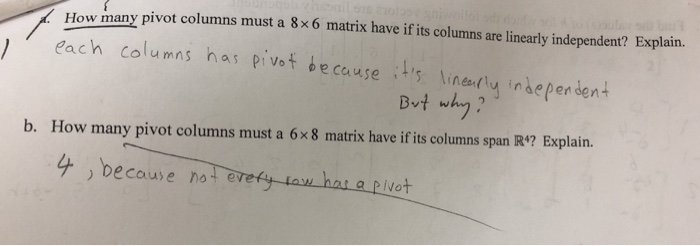 a. How many pivot columns must a 8×6 matrix have if its columns are linearly independent? Explain.
each columns has pivot because it's linearly independent
But why?
b. How many pivot columns must a 6×8 matrix have if its columns span ℝ⁴? Explain.
4, because not every row has a pivot